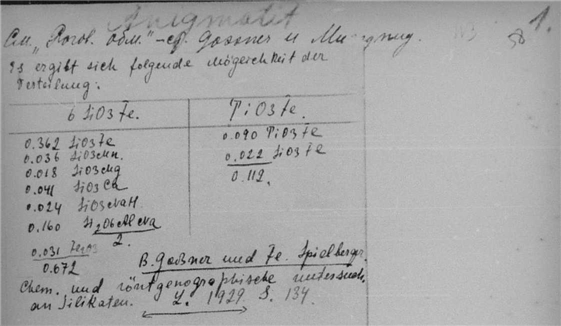 Aenigmatit
1.
См. „Догов. обм.“ – ср. Gossner и
58
Es ergibt sich folgende Mögeichkeit der
Verteilung:
6 SiO3Fe. TiO3Fe.
0.362 SiO3Fe 0.090 TiO3Fe
0.036 SiO3Mn. 0.022 SiO3Fe
0.018 SiO3Mg 0.112.
0.041 SiO3Ca
0.024 SiO3NaH.
0.160 Si2O6AlNa
2.
0.031 Fe2O3
0.672
B. Goßner und Fe. Spielberger.
Chem. und röntgenographische untersuch.
an Silikaten. Z. 1929 S. 134.